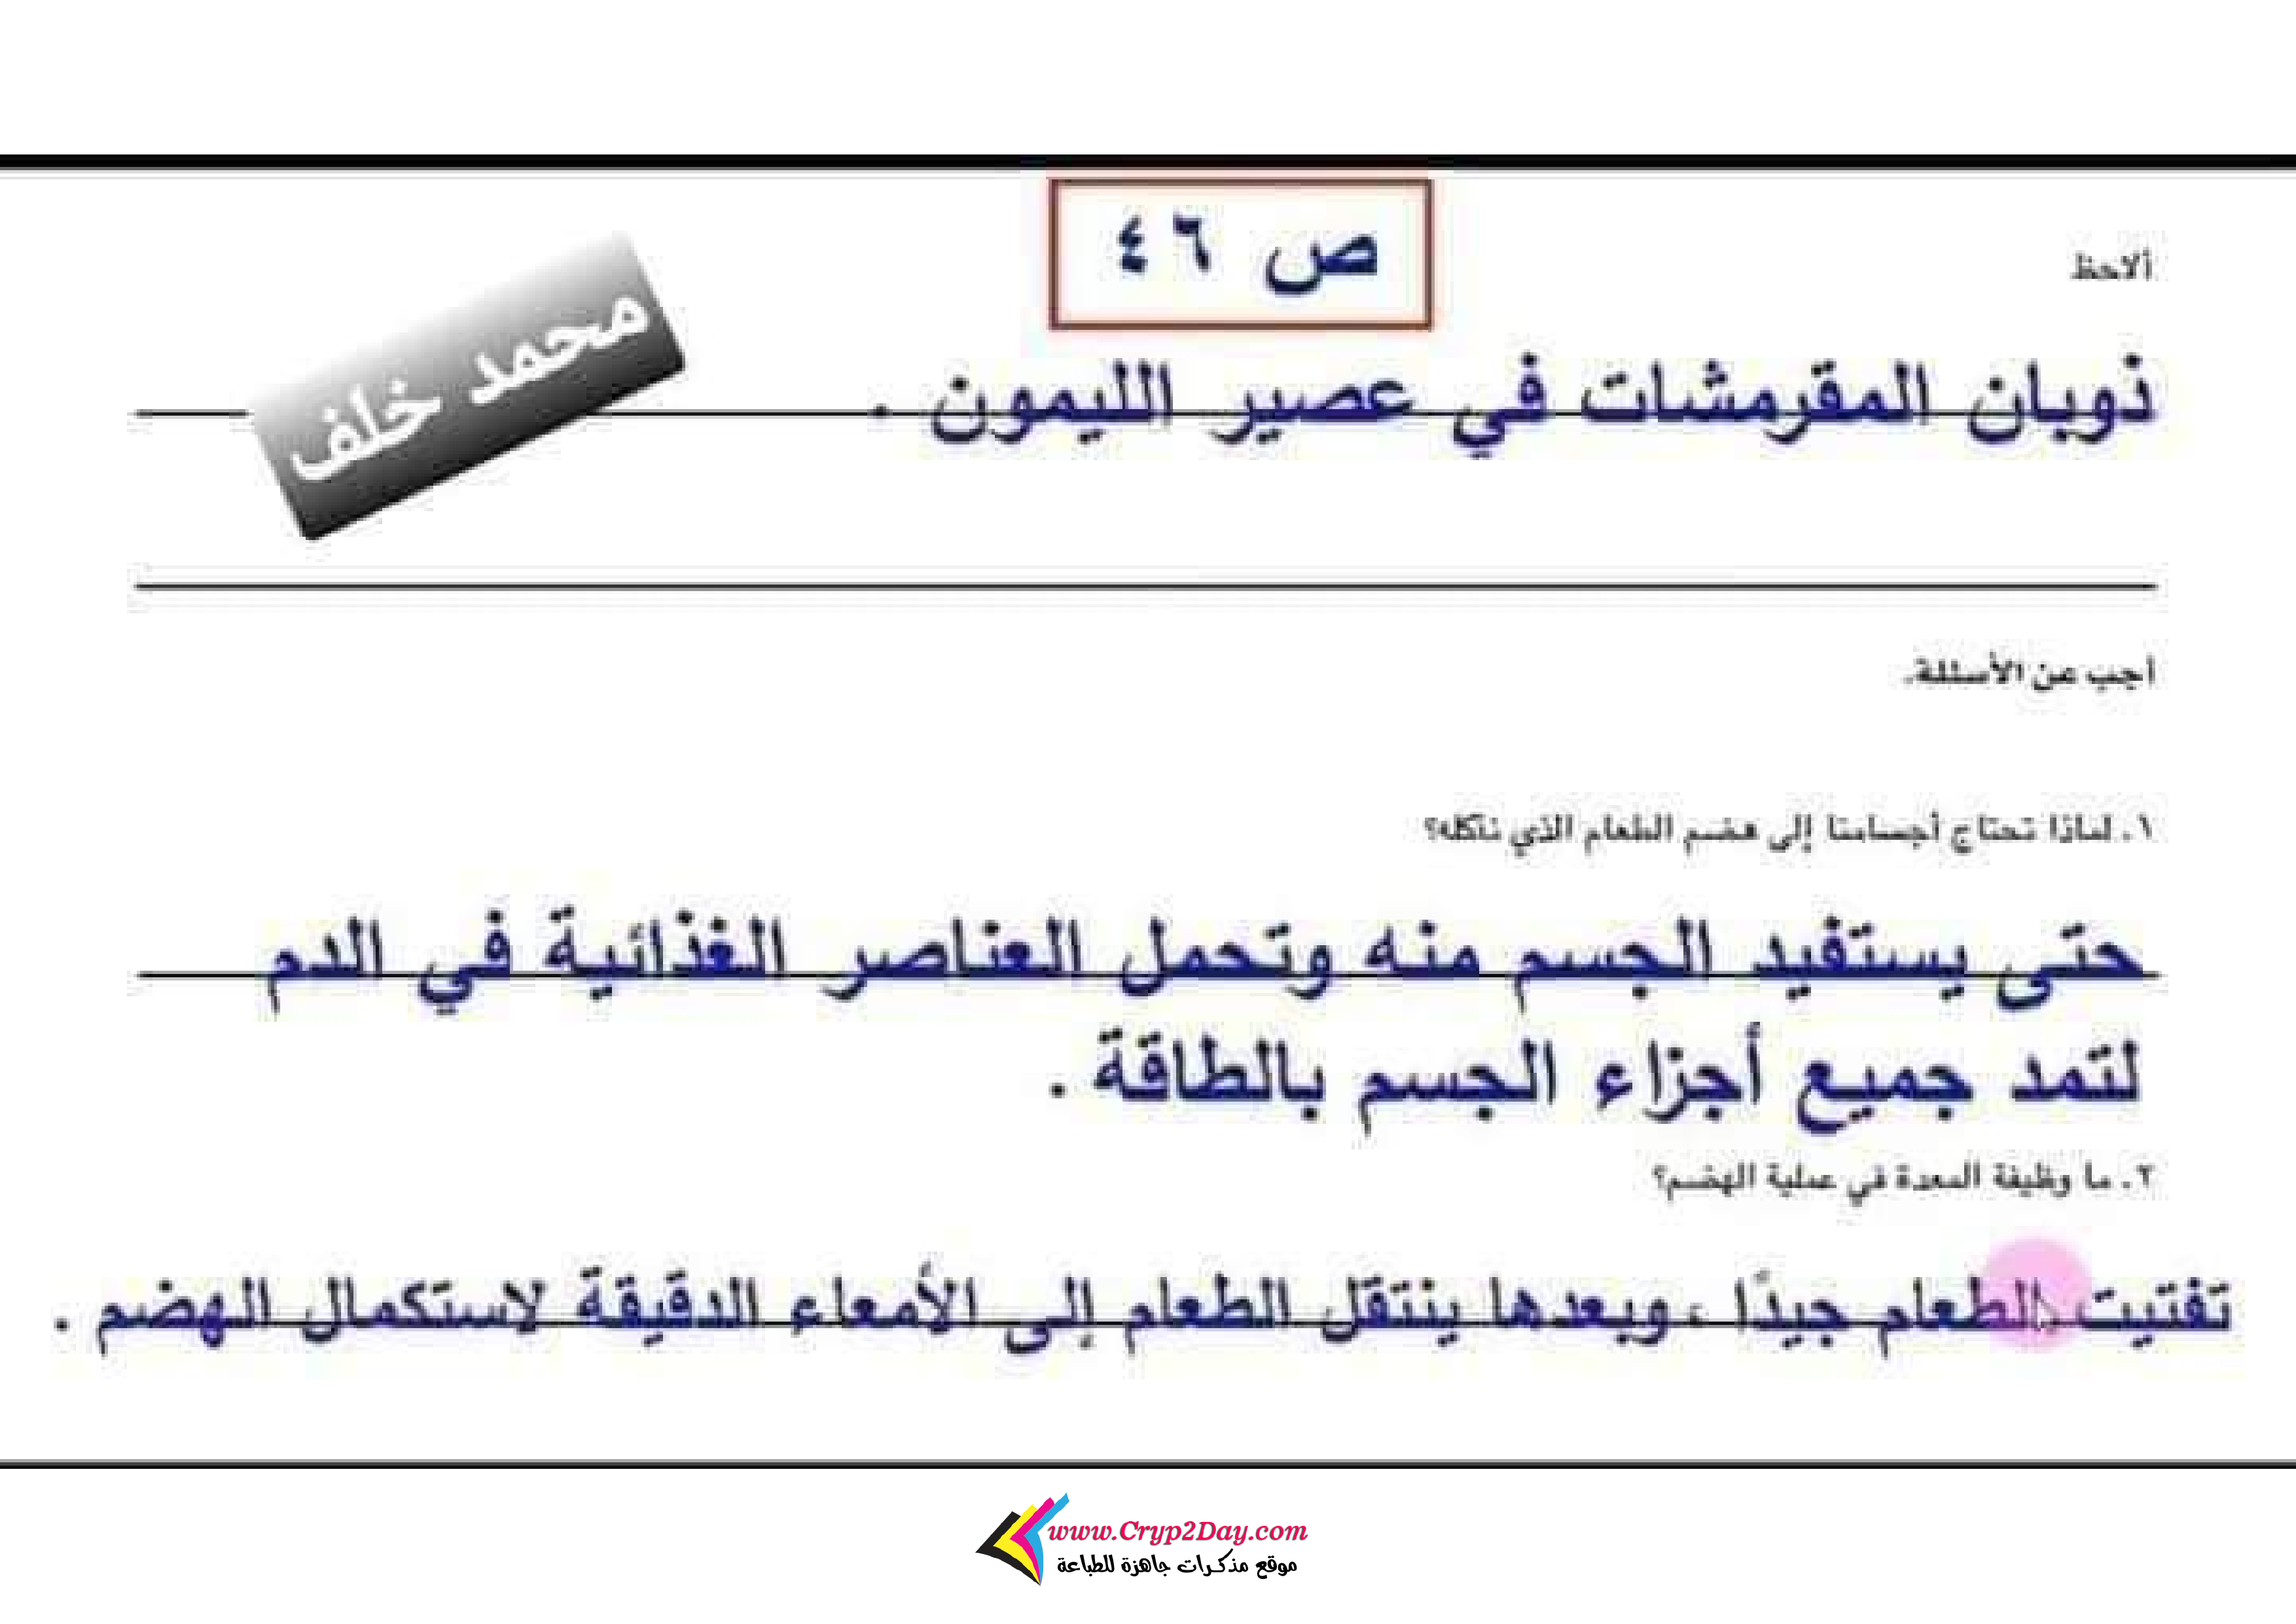 ص ٤٦
ألاحظ
محمد خلف
ذوبان المقرمشات في عصير الليمون .
أجب عن الأسئلة.
١. لماذا تحتاج أجسامنا إلى هضم الطعام الذي نأكله؟
حتى يستفيد الجسم منه وتحمل العناصر الغذائية في الدم
لتمد جميع أجزاء الجسم بالطاقة .
٢. ما وظيفة المعدة في عملية الهضم؟
تفتيت الطعام جيدًا ، وبعدها ينتقل الطعام إلى الأمعاء الدقيقة لاستكمال الهضم .
www.Cryp2Day.com
موقع مذكرات جاهزة للطباعة